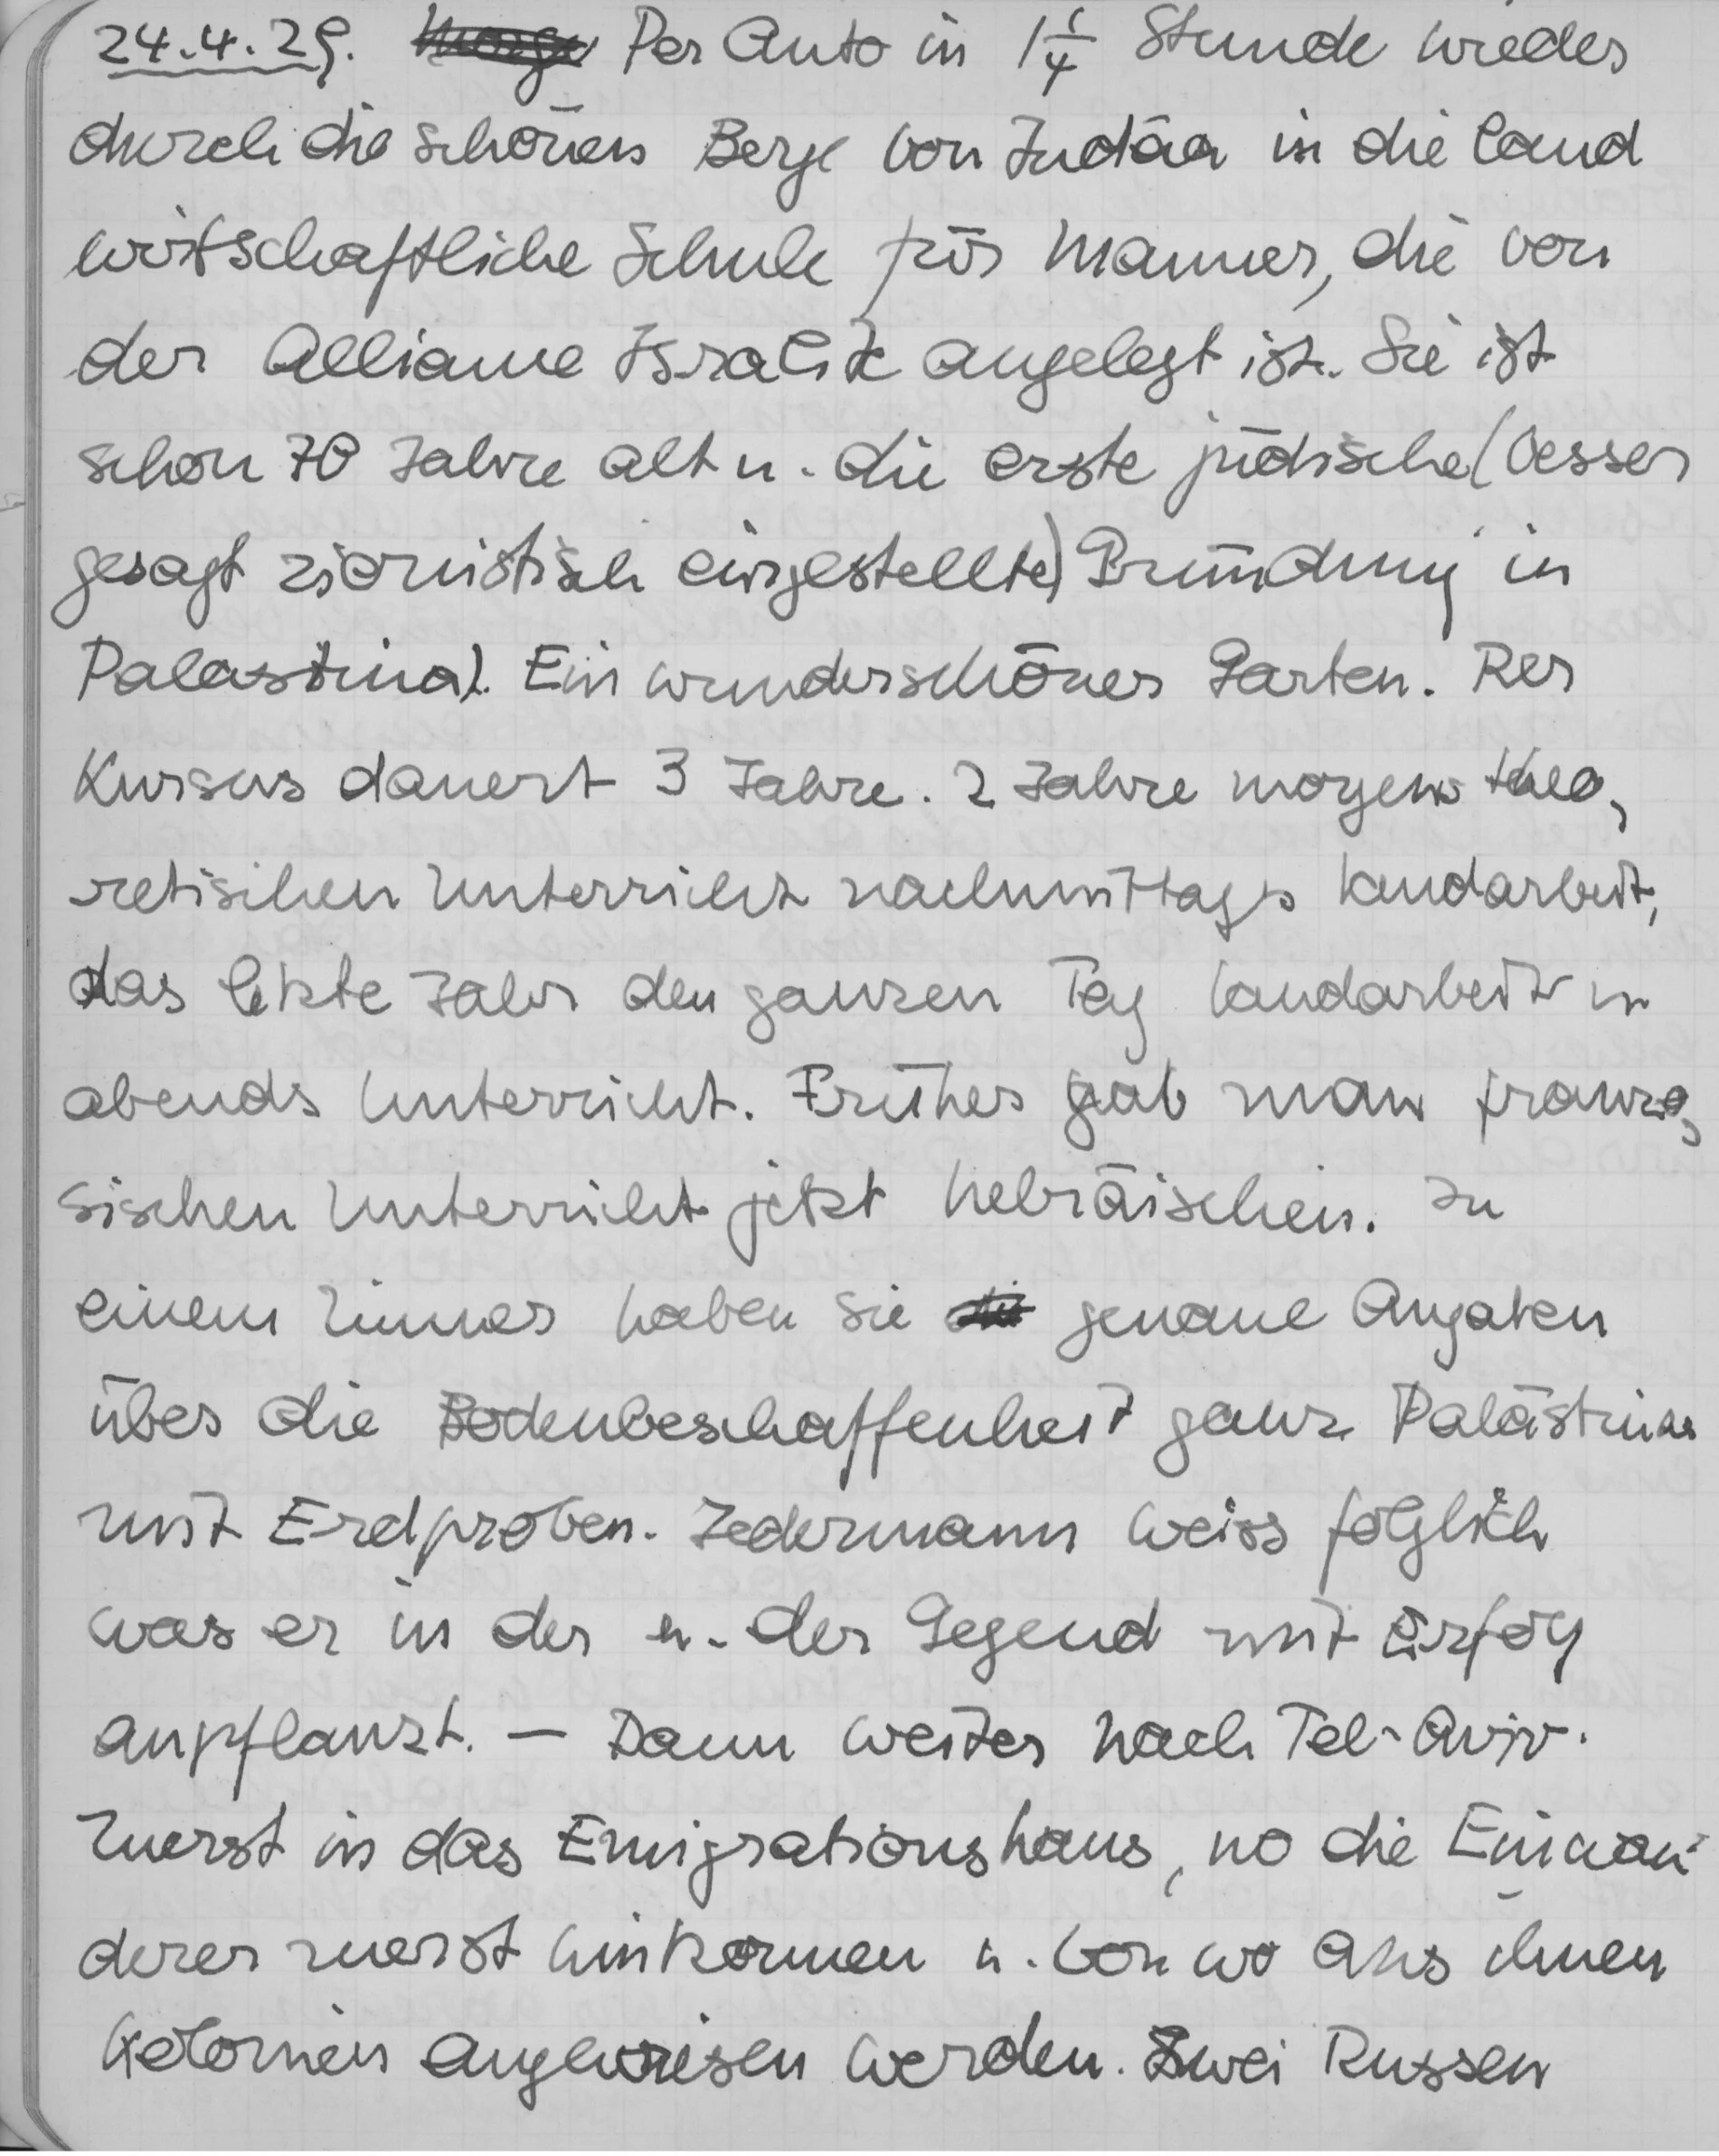 24.4.29. Per Auto in 1 1/4 Stunde wieder
durch die schönen Berge von Judäa in die land
wirtschaftliche Schule für Männer, die von
der Alliance Israelit angelegt ist. Sie ist
schon 70 Jahre alt u. die erste jüdische (besser
gesagt zionistisch eingestellte) Gründung in
Palästina). Ein wunderschöner Garten. Der
Kursus dauert 3 Jahre. 2 Jahre morgens theo,
retischen Unterricht nachmittags Landarbeit,
das letzte Jahr den ganzen Tag Landarbeit u
abends Unterricht. Früher gab man franzö,
sischen Unterricht jetzt hebräischen. In
einem Zimmer haben sie genaue Angaben
über die Bodenbeschaffenheit ganz Palästinas
mit Erdproben. Jedermann weiss folglich
was er in der u. der Gegend mit Erfolg
anpflanzt. — Dann weiter nach Tel-Aviv.
Zuerst in das Emigrationshaus, wo die Einwan-
derer zuerst hinkommen u. von wo aus ihnen
Kolonien angewiesen werden. Zwei Russen